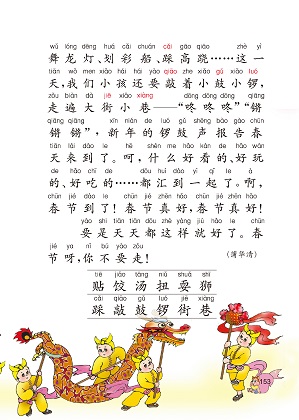 wǔ lóng dēng huá cǎi chuán cǎi gāo qiāo zhè yì
舞龙灯、划彩船、踩高跷……这一
tiān wǒ men xiǎo hái hái yào qiāo zhe xiǎo gǔ xiǎo luó
天,我们小孩还要敲着小鼓小锣,
zǒu biàn dà jiē xiǎo xiàng dōng dōng dōng qiāng
走遍大街小巷——“咚咚咚”“锵
qiāng qiāng xīn nián de luó gǔ shēng bào gào chūn
锵锵”,新年的锣鼓声报告春
tiān lái dào le hē shén me hǎo kàn de hǎo wán
天来到了。呵,什么好看的、好玩
de hǎo chī de dōu huì dào yì qǐ le ā
的、好吃的……都汇到一起了。啊,
chūn jié dào le chūn jié zhēn hǎo chūn jié zhēn hǎo
春节到了!春节真好,春节真好!
yào shi tiān tiān dōu zhè yàng jiù hǎo le chūn
要是天天都这样就好了。春
jié ya nǐ bú yào zǒu
节呀,你不要走!
(蒲华清)
tiē jiǎo tāng niǔ shuǎ shī
贴饺汤扭耍狮
cǎi qiāo gǔ luó jiē xiàng
踩敲鼓锣街巷
153